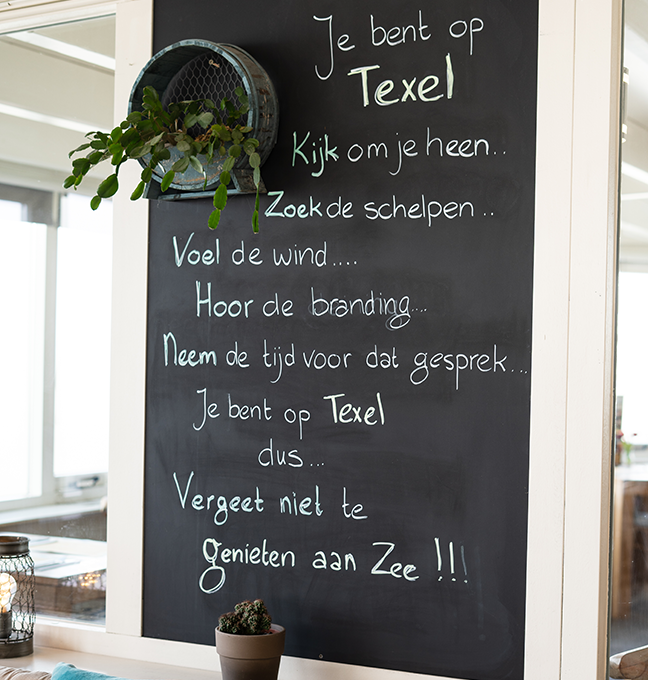 Je bent op
Texel
Kijk om je heen..
Zoek de schelpen ..
Voel de wind....
Hoor de branding....
Neem de tijd voor dat gesprek...
Je bent op Texel
dus...
Vergeet niet te
genieten aan Zee !!!